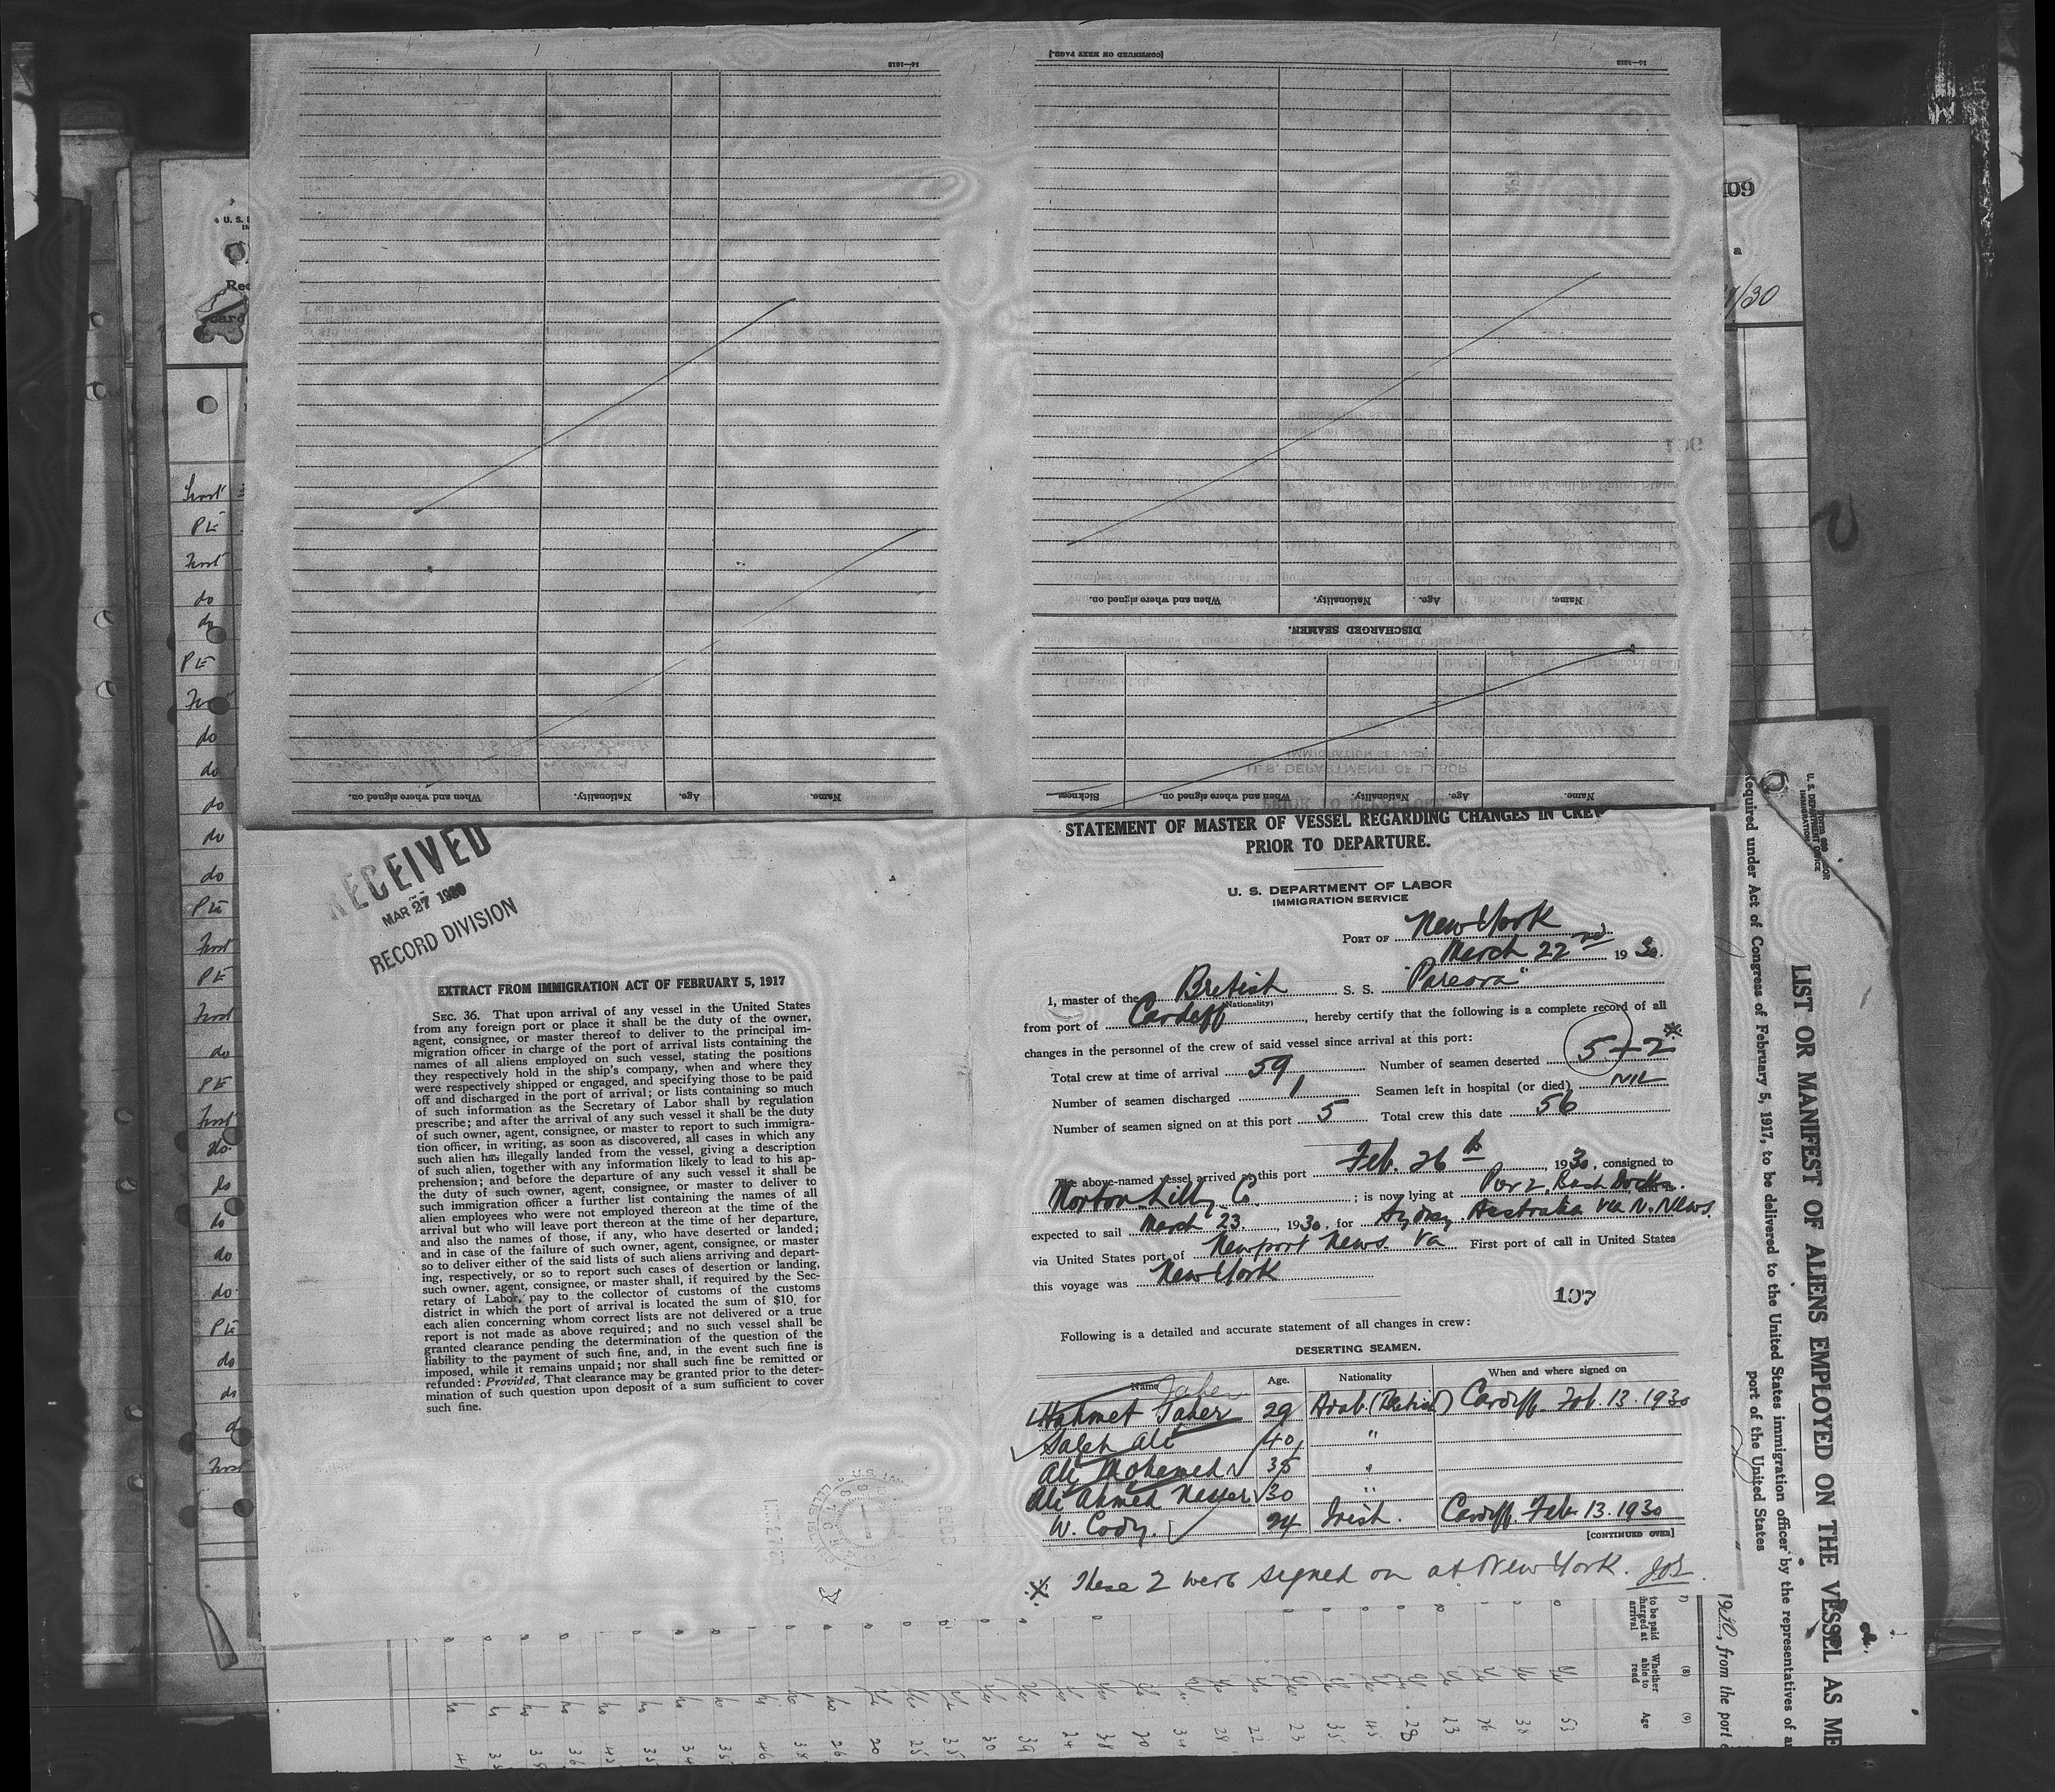 [CONTINUED ON NEXT PAGE.]
16—1513
16—1513
Name. Age. Nationality. When and where signed on.
DISCHARGED SEAMEN.
Name. Age. Nationality. When and where signed on. Sickness
Name. Age. Nationality. When and where signed on.
RECEIVED
MAR 27 1930
RECORD DIVISION
EXTRACT FROM IMMIGRATION ACT OF FEBRUARY 5, 1917
SEC. 36. That upon arrival of any vessel in the United States
from any foreign port or place it shall be the duty of the owner,
agent, consignee, or master thereof to deliver to the principal im-
migration officer in charge of the port of arrival lists containing the
names of all aliens employed on such vessel, stating the positions
they respectively hold in the ship's company, when and where they
were respectively shipped or engaged, and specifying those to be paid
off and discharged in the port of arrival; or lists containing so much
of such information as the Secretary of Labor shall by regulation
prescribe; and after the arrival of any such vessel it shall be the duty
of such owner, agent, consignee, or master to report to such immigra-
tion officer, in writing, as soon as discovered, all cases in which any
such alien has illegally landed from the vessel, giving a description
of such alien, together with any information likely to lead to his ap-
prehension; and before the departure of any such vessel it shall be
the duty of such owner, agent, consignee, or master to deliver to
such immigration officer a further list containing the names of all
alien employees who were not employed thereon at the time of the
arrival but who will leave port thereon at the time of her departure,
and also the names of those, if any, who have deserted or landed;
and in case of the failure of such owner, agent, consignee, or master
so to deliver either of the said lists of such aliens arriving and depart-
ing, respectively, or so to report such cases of desertion or landing,
such owner, agent, consignee, or master shall, if required by the Sec-
retary of Labor, pay to the collector of customs of the customs
district in which the port of arrival is located the sum of $10 for
each alien concerning whom correct lists are not delivered or a true
report is not made as above required; and no such vessel shall be
granted clearance pending the determination of the question of the
liability to the payment of such fine, and, in the event such fine is
imposed, while it remains unpaid; nor shall such fine be remitted or
refunded: Provided, That clearance may be granted prior to the deter-
mination of such question upon deposit of a sum sufficient to cover
such fine.
STATEMENT OF MASTER OF VESSEL REGARDING CHANGES IN CREW
PRIOR TO DEPARTURE.
U. S. DEPARTMENT OF LABOR
IMMIGRATION SERVICE
PORT OF New York
March 22nd 1930.
I, master of the British S. S. "Pareora"
(Nationality)
from port of Cardiff, hereby certify that the following is a complete record of all
changes in the personnel of the crew of said vessel since arrival at this port:
Total crew at time of arrival 59 Number of seamen deserted 5+2 *
Number of seamen discharged 1 Seamen left in hospital (or died) NIL
Number of seamen signed on at this port 5 Total crew this date 56
The above-named vessel arrived at this port Feb. 26th, 1930, consigned to
Norton Lilly Co. ; is now lying at Pier 2, Bush Docks.
expected to sail March 23, 1930, for Sydney Australia via N. News.
via United States port of Newport News. Va First port of call in United States
this voyage was New York
107
Following is a detailed and accurate statement of all changes in crew:
DESERTING SEAMEN.
Name Age. Nationality When and where signed on
Taher
Hahmet Taher 29 Arab. (British) Cardiff Feb. 13. 1930
Saleh Ali 40 "
Ali Mohamed 35 "
Ali Ahmed Nasser 30 "
W. Cody. 24 Irish. Cardiff. Feb. 13. 1930
[CONTINUED OVER]
* These 2 were signed on at New York.
LIST OR MANIFEST OF ALIENS EMPLOYED ON THE VESSEL AS ME
Required under Act of Congress of February 5, 1917, to be delivered to the United States immigration officer by the representatives of a
port of the United States
1930, from the port
(8)
Whether able to read
(9)
Age